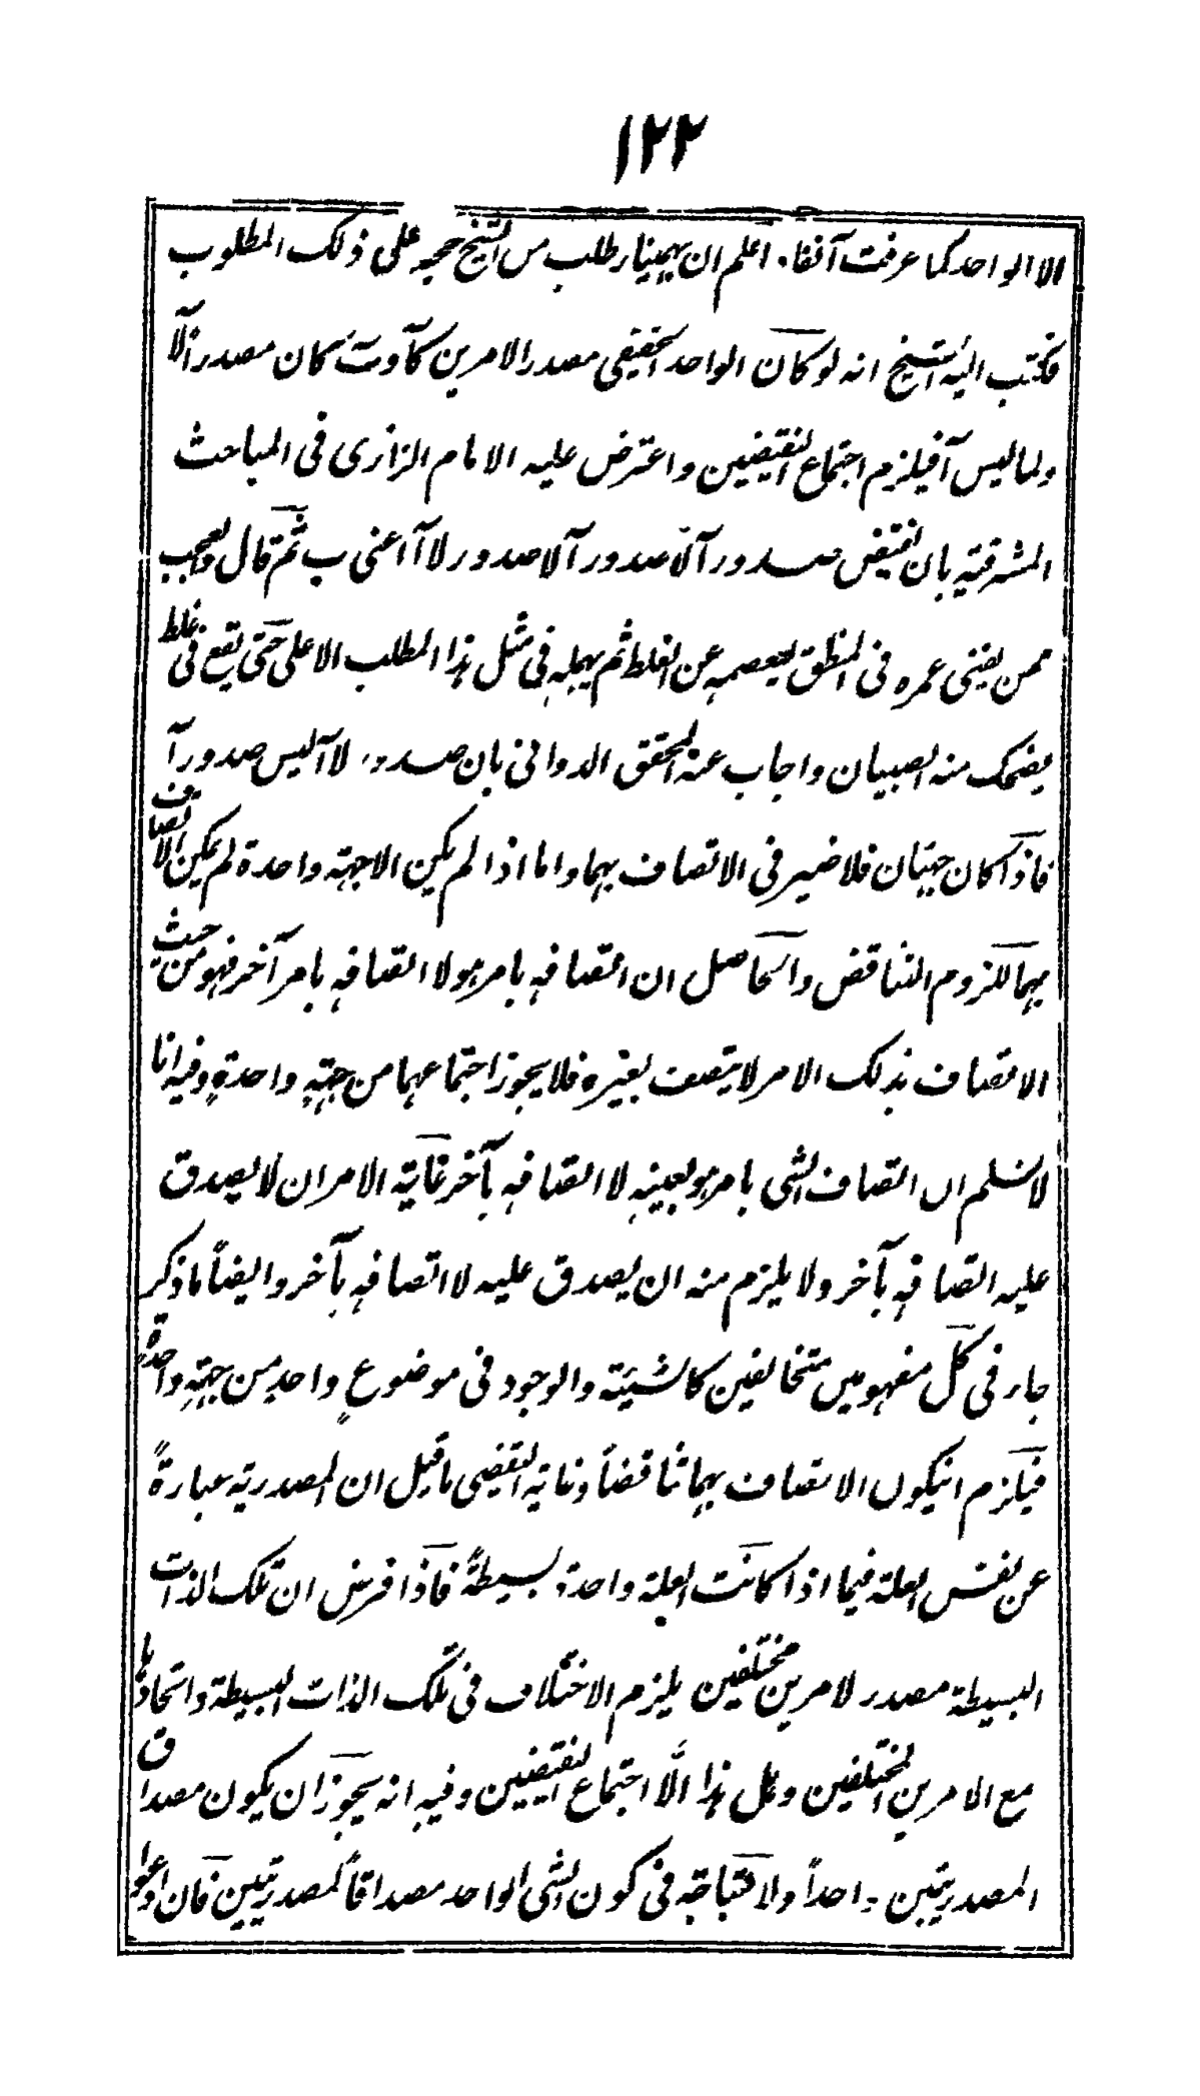 ١٢٢
الا الواحد كما عرفت آنفا. اعلم ان بهمنيار طلب من الشيخ حجة على ذلك المطلوب
فكتب اليه الشيخ انه لو كان الواحد الحقيقى مصدر الامرين كآ وب كان مصدر الآ
ولما ليس آ فيلزم اجتماع النقيضين واعترض عليه الامام الرازى فى المباحث
المشرقية بان نقيض صدور آ لا صدور آ لا صدور لا آ اعنى ب ثم قال والعجب
ممن يفنى عمره فى المنطق ليعصمه عن الغلط ثم يهمله فى مثل هذا المطلب الاعلى حتى يقع فى غلط
يضحك منه الصبيان واجاب عنه المحقق الدوانى بان صدور لا آ ليس صدور آ
فاذا كان جهتان فلا ضير فى الاتصاف بهما واما اذا لم يكن الا جهة واحدة لم يكن الاتصاف
بهما للزوم التناقض والحاصل ان اتصافه بامر هو لا اتصافه بامر آخر فهو من حيث
الاتصاف بذلك الامر لا يتصف بغيره فلا يجوز اجتماعهما من جهةٍ واحدةٍ وفيه انا
لا نسلم ان اتصاف الشى بامر هو بعينه لا اتصافه بآخر غاية الامر ان لا يصدق
عليه اتصافه بآخر ولا يلزم منه ان يصدق عليه لا اتصافه بآخر وايضاً ما ذكر
جار فى كل مفهومين متخالفين كالشيئة والوجود فى موضوعٍ واحدٍ من جهةٍ واحدةٍ
فيلزم انيكون الاتصاف بهما تناقضاً وغاية التفصى ما قيل ان المصدرية عبارةً
عن نفس العلة فيما اذا كانت العلة واحدة بسيطةً فاذا فرض ان تلك الذات
البسيطة مصدر لامرين مختلفين يلزم الاختلاف فى تلك الذات البسيطة واتحادها
مع الامرين المختلفين وهل هذا الا اجتماع النقيضين وفيه انه يجوز ان يكون مصداق
المصدريتين واحداً ولا قباحة فى كون الشى الواحد مصداقاً لمصدريتين فان ادعوا